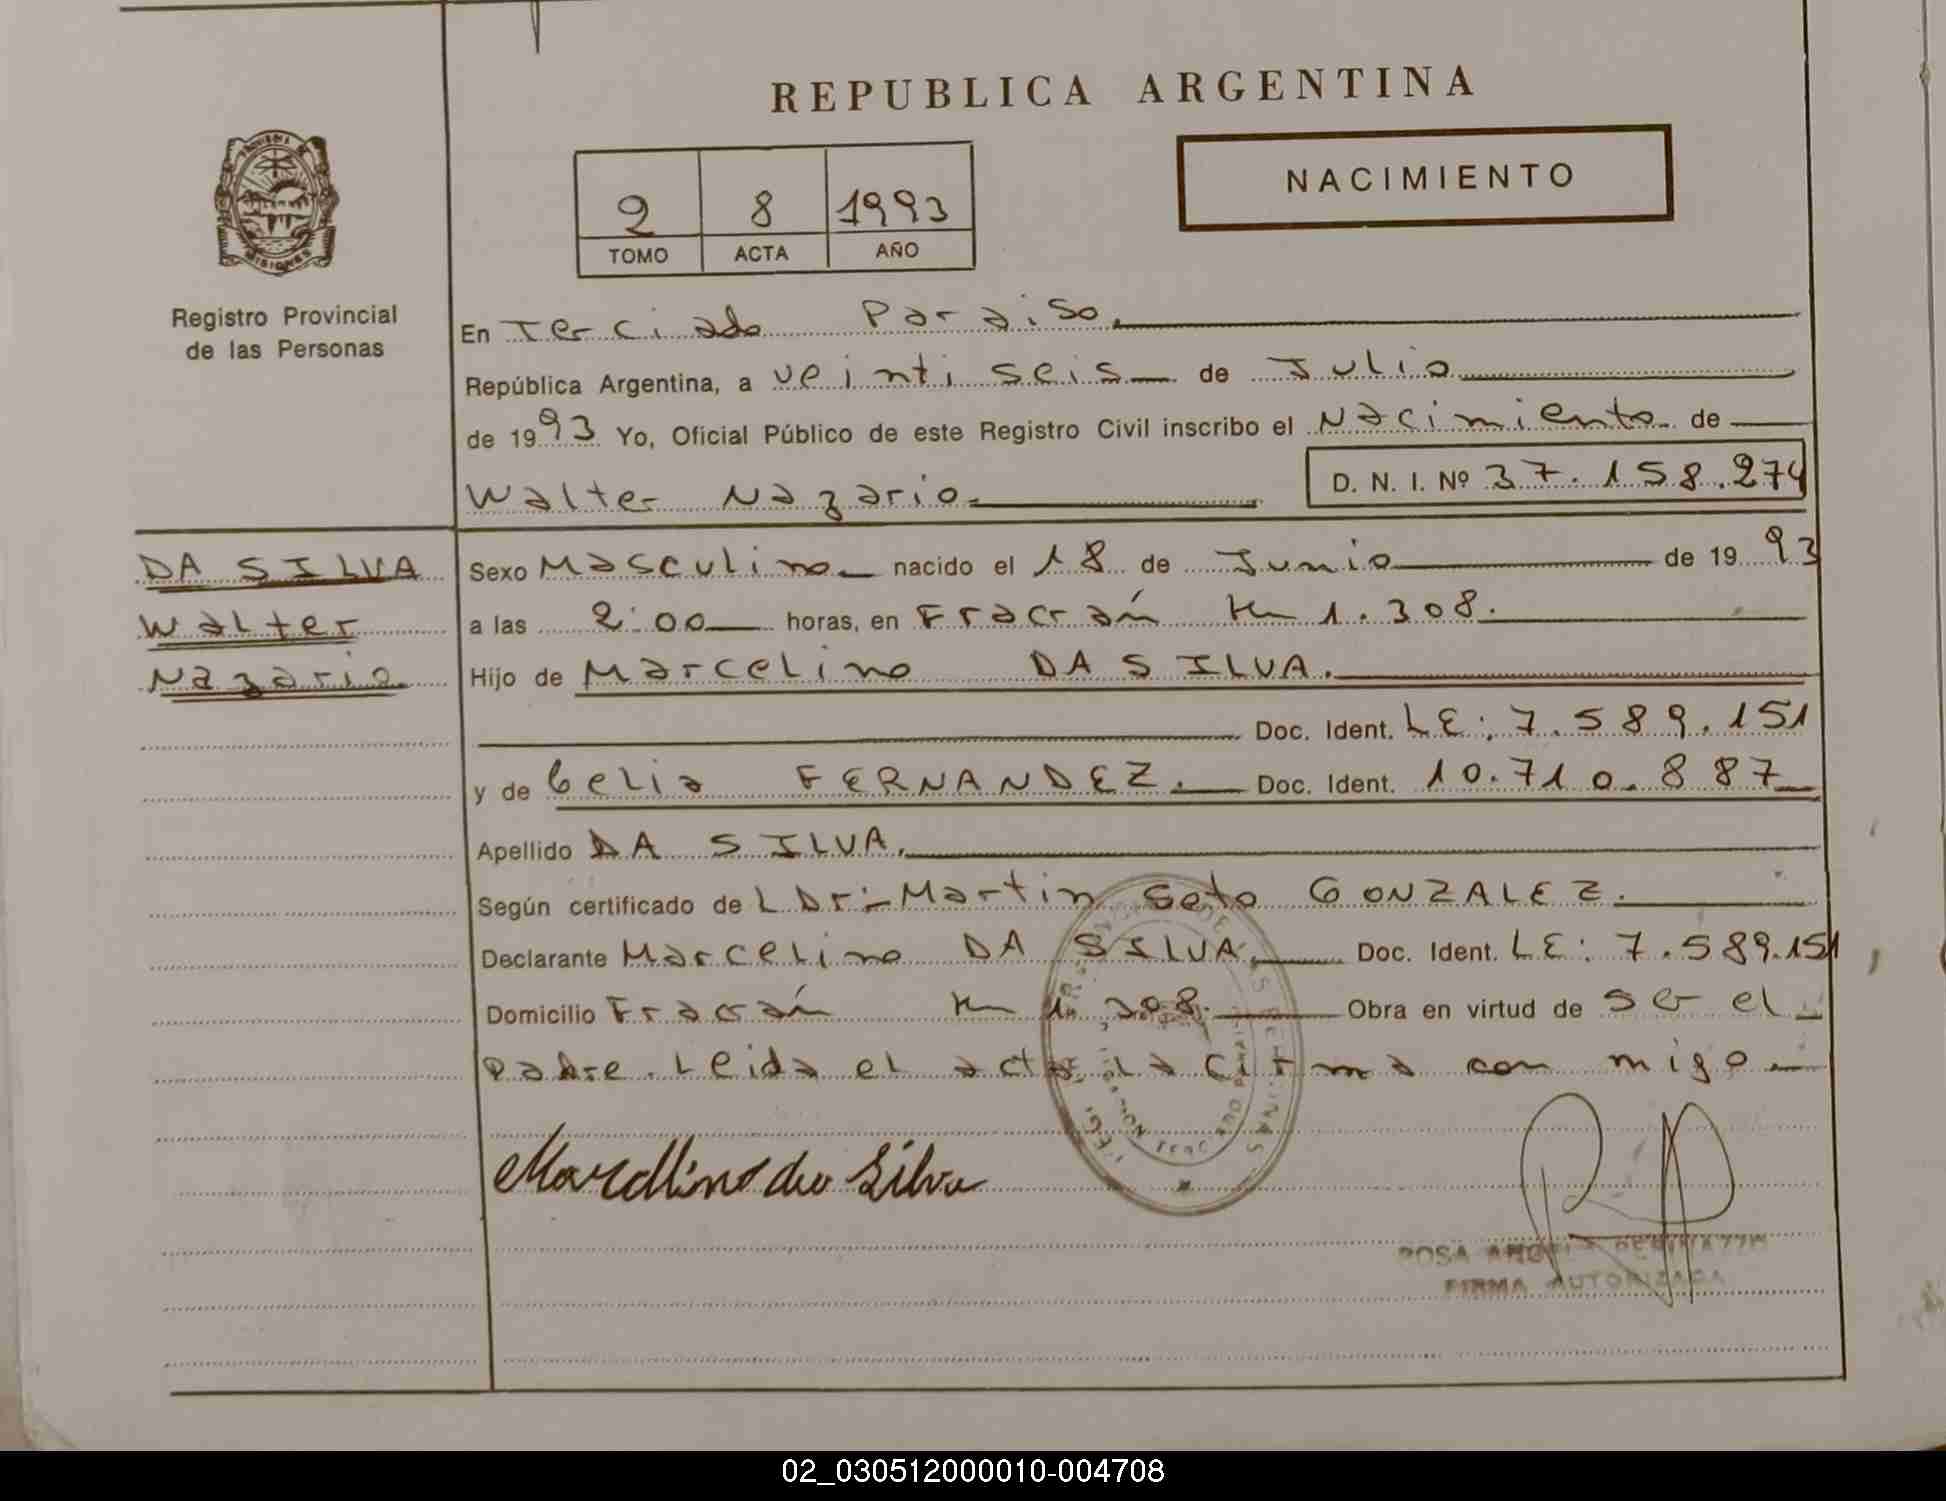 REPUBLICA ARGENTINA
NACIMIENTO
2 8 1993
TOMO ACTA AÑO
PROVINCIA DE
MISIONES
Registro Provincial
de las Personas
En Terciado Paraiso.
República Argentina, a veinti seis de Julio
de 1993 Yo, Oficial Público de este Registro Civil inscribo el Nacimiento de
Walter Nazario. D. N. I. Nº 37.158.274
DA SILVA
Walter
Nazario
Sexo Masculino nacido el 18 de Junio de 1993
a las 2:00 horas, en Fracrán Km 1.308.
Hijo de Marcelino DA SILVA.
Doc. Ident. LE: 7.589.151
y de Celia FERNANDEZ. Doc. Ident. 10.710.887
Apellido DA SILVA.
Según certificado de L Dr:- Martin Soto GONZALEZ.
Declarante Marcelino DA SILVA. Doc. Ident. LE: 7.589.151
Domicilio Fracrán Km 1.308. Obra en virtud de ser el
padre. Leida el acta la firma con migo
Marcellino da Silva
ROSA
FIRMA AUTORIZADA
02_030512000010-004708